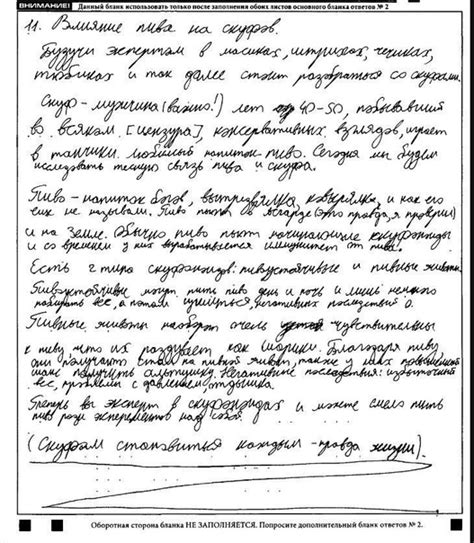 ВНИМАНИЕ! Данный бланк использовать только после заполнения обоих листов основного бланка ответов № 2
11. Влияние пива на скуфов.
Будучи экспертом в масиках, штрихах, чечиках,
тюбиках и так далее стоит разобраться со скуфами.
Скуф - мужчина (важно!) лет 40-50, побывавший
во всяком [цензура], консервативных взглядов, играет
в танчики. любимый напиток - пиво. Сегодня мы будем
исследовать тесную связь пива и скуфа.
Пиво - напиток богов, и как его
еще не называли. Пиво пьют в (это правда, я проверил)
и на Земле. Обычно пиво пьют начинающие скуфоноиды
и со временем у них вырабатывается иммунитет от пива.
Есть 2 типа скуфоноидов: пивоустойчивые и пивные животы.
Пивоустойчивые могут пить пиво день и ночь и лишь немного
набирать вес, а потом негативных последствий 0.
Пивные животы наоборот очень чувствительны
к пиву что их раздувает как шарики. Благодаря пиву
они получают пивной живот, также у них повышенный
шанс получить Негативные последствия: избыточный
вес, проблемы с давлением отдышка.
Теперь вы эксперт в скуфоноидах и можете смело пить
пиво ради экспериментов над собой.
(Скуфом становиться каждый - правда жизни).
Оборотная сторона бланка НЕ ЗАПОЛНЯЕТСЯ. Попросите дополнительный бланк ответов № 2.